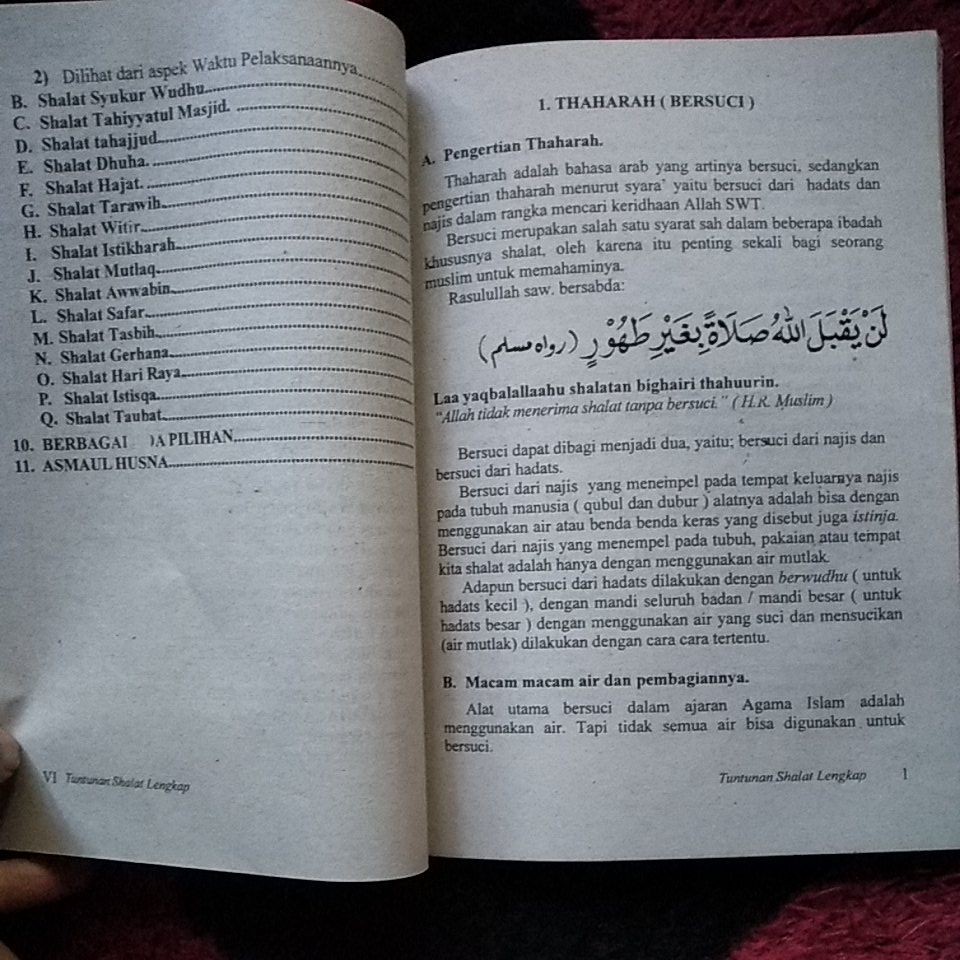 2) Dilihat dari aspek Waktu Pelaksanaannya.....
B. Shalat Syukur Wudhu..............................
C. Shalat Tahiyyatul Masjid. ..............................
D. Shalat tahajjud..............................
E. Shalat Dhuha. ..............................
F. Shalat Hajat. ..............................
G. Shalat Tarawih..............................
H. Shalat Witir..............................
I. Shalat Istikharah..............................
J. Shalat Mutlaq..............................
K. Shalat Awwabin..............................
L. Shalat Safar..............................
M. Shalat Tasbih..............................
N. Shalat Gerhana..............................
O. Shalat Hari Raya..............................
P. Shalat Istisqa..............................
Q. Shalat Taubat..............................
10. BERBAGAI )A PILIHAN..............................
11. ASMAUL HUSNA..............................
VI Tuntunan Shalat Lengkap
1. THAHARAH ( BERSUCI )
A. Pengertian Thaharah.
Thaharah adalah bahasa arab yang artinya bersuci, sedangkan
pengertian thaharah menurut syara' yaitu bersuci dari hadats dan
najis dalam rangka mencari keridhaan Allah SWT.
Bersuci merupakan salah satu syarat sah dalam beberapa ibadah
khususnya shalat, oleh karena itu penting sekali bagi seorang
muslim untuk memahaminya.
Rasulullah saw. bersabda:
لَنْ يَقْبَلَ اللهُ صَلَاةً بِغَيْرِ طَهُوْرٍ (رواه مسلم)
Laa yaqbalallaahu shalatan bighairi thahuurin.
"Allah tidak menerima shalat tanpa bersuci." ( H.R. Muslim )
Bersuci dapat dibagi menjadi dua, yaitu; bersuci dari najis dan
bersuci dari hadats.
Bersuci dari najis yang menempel pada tempat keluarnya najis
pada tubuh manusia ( qubul dan dubur ) alatnya adalah bisa dengan
menggunakan air atau benda benda keras yang disebut juga istinja.
Bersuci dari najis yang menempel pada tubuh, pakaian atau tempat
kita shalat adalah hanya dengan menggunakan air mutlak.
Adapun bersuci dari hadats dilakukan dengan berwudhu ( untuk
hadats kecil ), dengan mandi seluruh badan / mandi besar ( untuk
hadats besar ) dengan menggunakan air yang suci dan mensucikan
(air mutlak) dilakukan dengan cara cara tertentu.
B. Macam macam air dan pembagiannya.
Alat utama bersuci dalam ajaran Agama Islam adalah
menggunakan air. Tapi tidak semua air bisa digunakan untuk
bersuci.
Tuntunan Shalat Lengkap 1